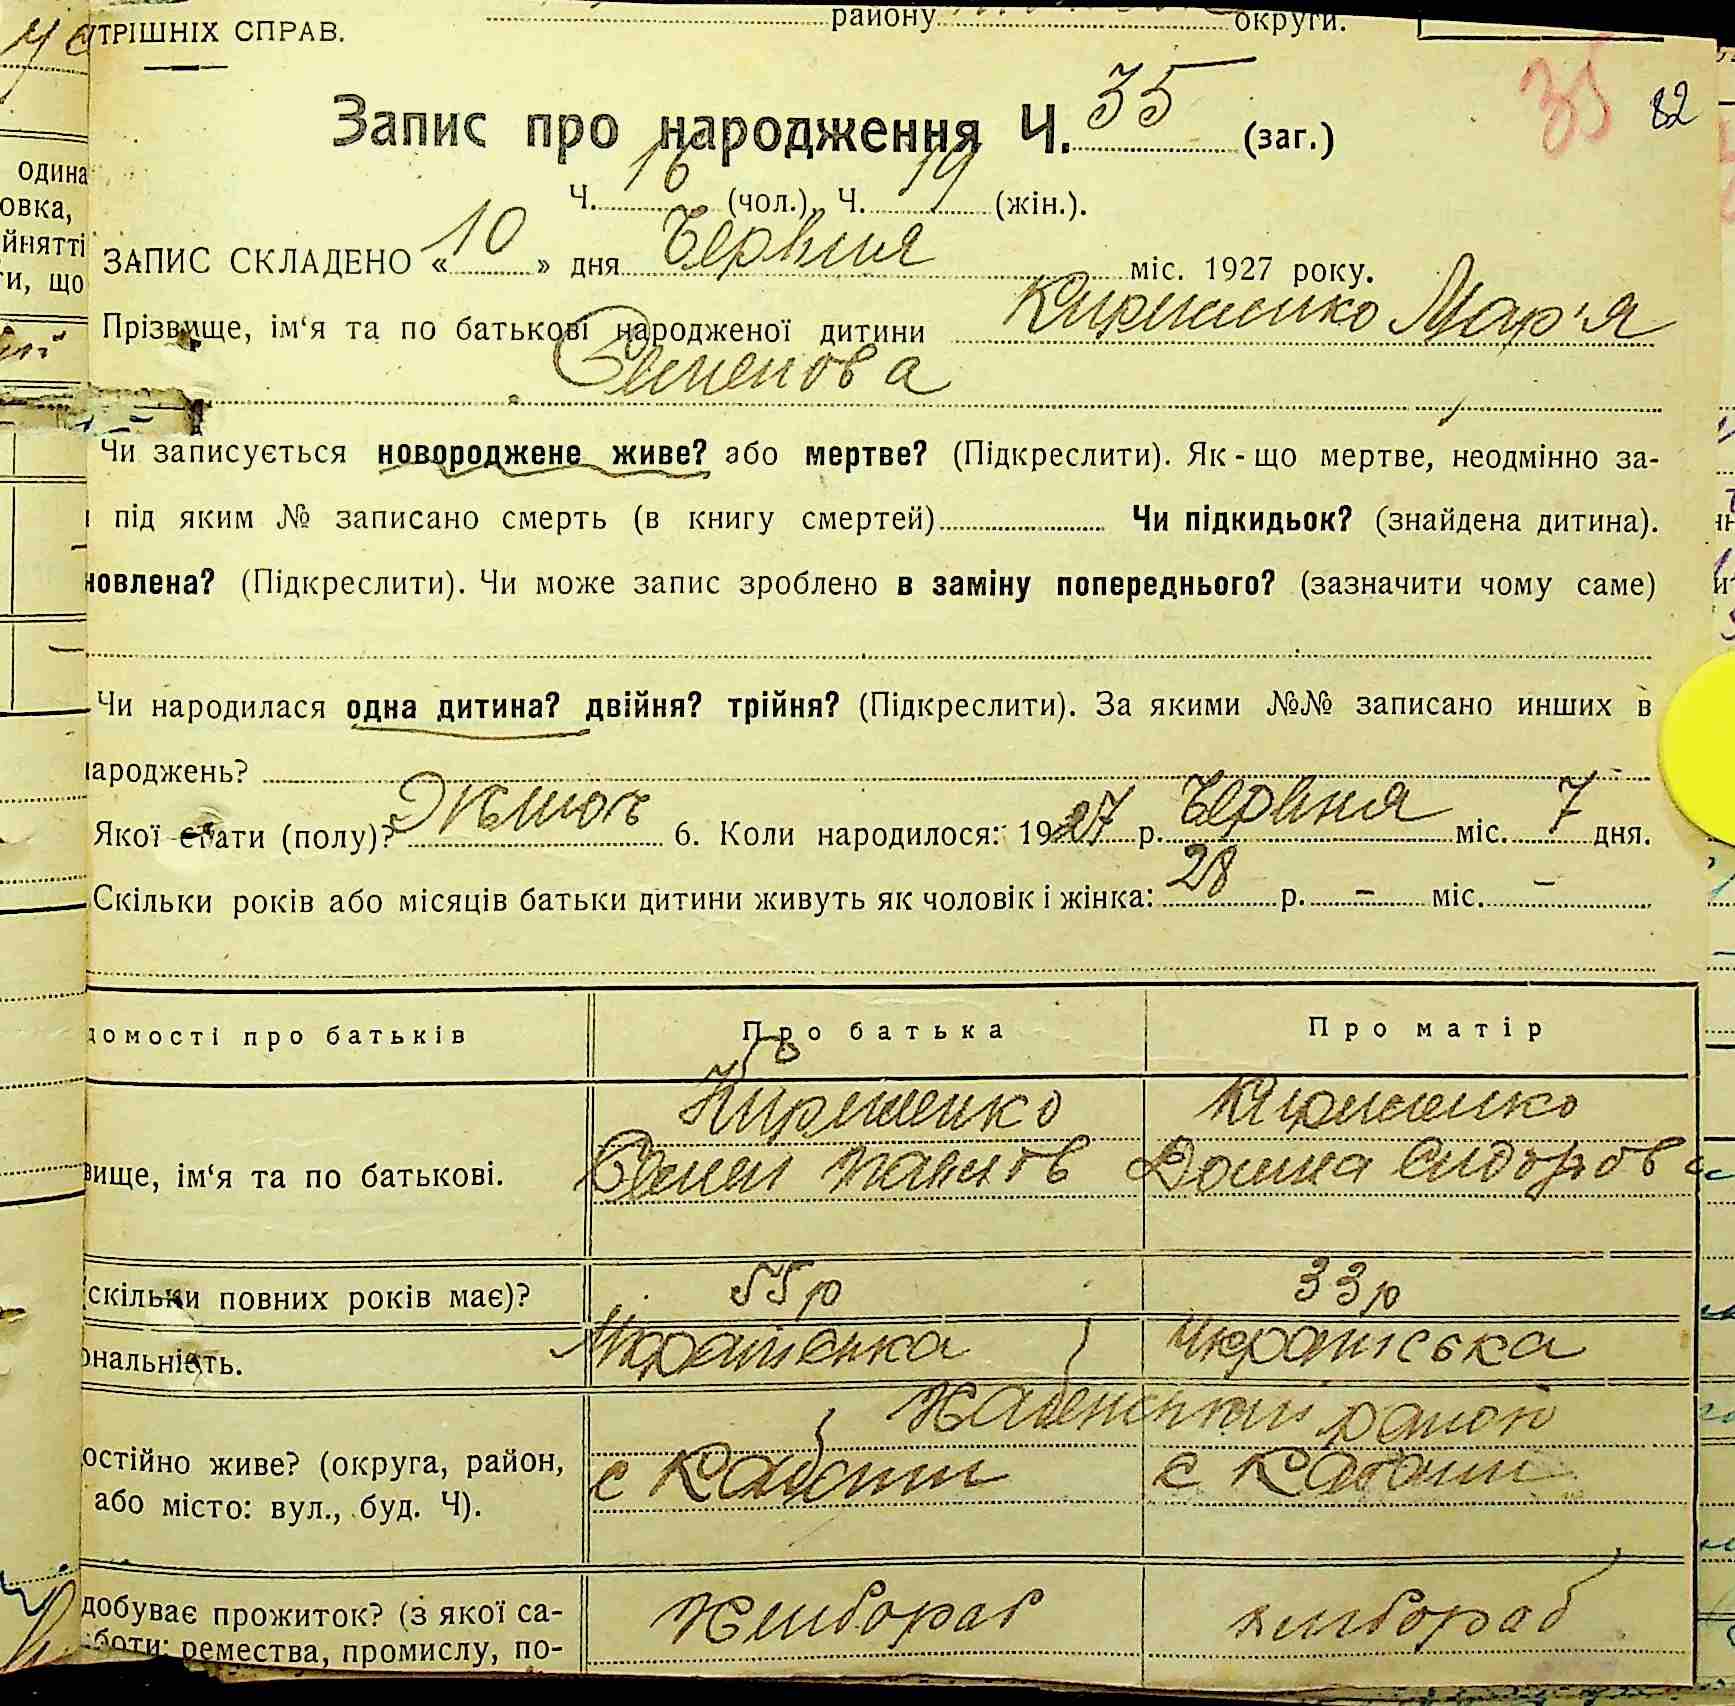 ТРІШНІХ СПРАВ.
району округи.
Запис про народження Ч. 35 (заг.)
35 82
Ч. 16 (чол.), Ч. 19 (жін.).
ЗАПИС СКЛАДЕНО « 10 » дня Червня міс. 1927 року.
Прізвище, ім‘я та по батькові народженої дитини Кириченко Мар'я
Семенова
Чи записується новороджене живе? або мертве? (Підкреслити). Як-що мертве, неодмінно за-
під яким № записано смерть (в книгу смертей) Чи підкидьок? (знайдена дитина).
новлена? (Підкреслити). Чи може запис зроблено в заміну попереднього? (зазначити чому саме)
Чи народилася одна дитина? двійня? трійня? (Підкреслити). За якими №№ записано инших в
народжень?
Якої стати (полу)? 6. Коли народилося: 1927 р. Червня міс. 7 дня.
Скільки років або місяців батьки дитини живуть як чоловік і жінка: 28 р. – міс. –
домості про батьків Про батька Про матір
Кириченко Кириченко
вище, ім‘я та по батькові. Семен Домна Сидорова
(скільки повних років має)? 55р 33р
ональність. Українська Українська
район
остійно живе? (округа, район, с с
або місто: вул., буд. Ч).
добуває прожиток? (з якої са- Хлібороб хлібороб
боти: ремества, промислу, по-
одина
овка,
йнятті
ти, що